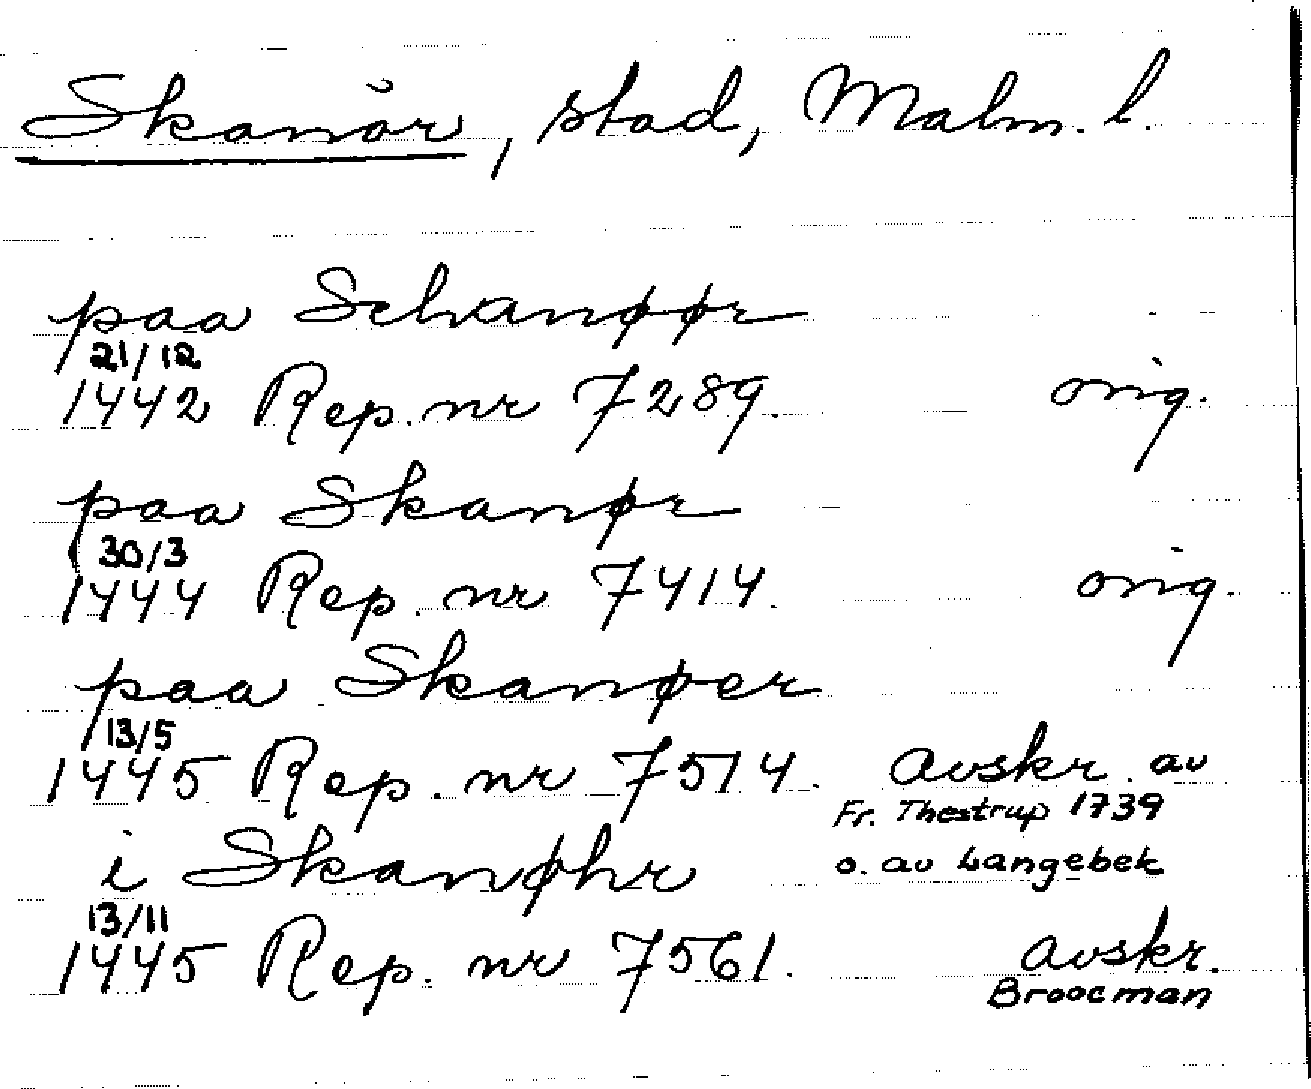 Skanör, stad, Malm. l.
paa Schanøør
21/12
1442 Rep. nr 7289. orig.
paa Skanør
30/3
1444 Rep. nr 7414. orig.
paa Skanøer
13/5
1445 Rep. nr 7514. Avskr. av
Fr. Thestrup 1739
o. av Langebek
i Skanøhr
13/11
1445 Rep. nr 7561. Avskr.
Broocman